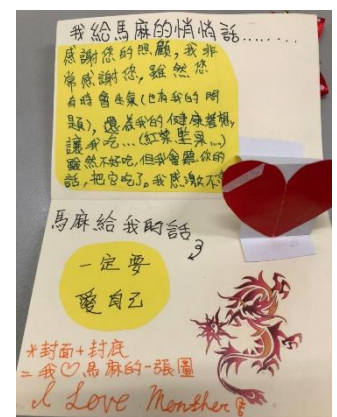 我給馬麻的悄悄話........
感謝您的照顧,我非
常感謝您,雖然您
有時會生氣(也有我的問
題),還為我的健康著想,
讓我吃...(紅菜堅果...)
雖然不好吃,但我會聽你的
話,把它吃了。我感激不
馬麻給我的話
一定要
愛自己
*封面+封底
=我♡馬麻的一張圖
I Love Monther